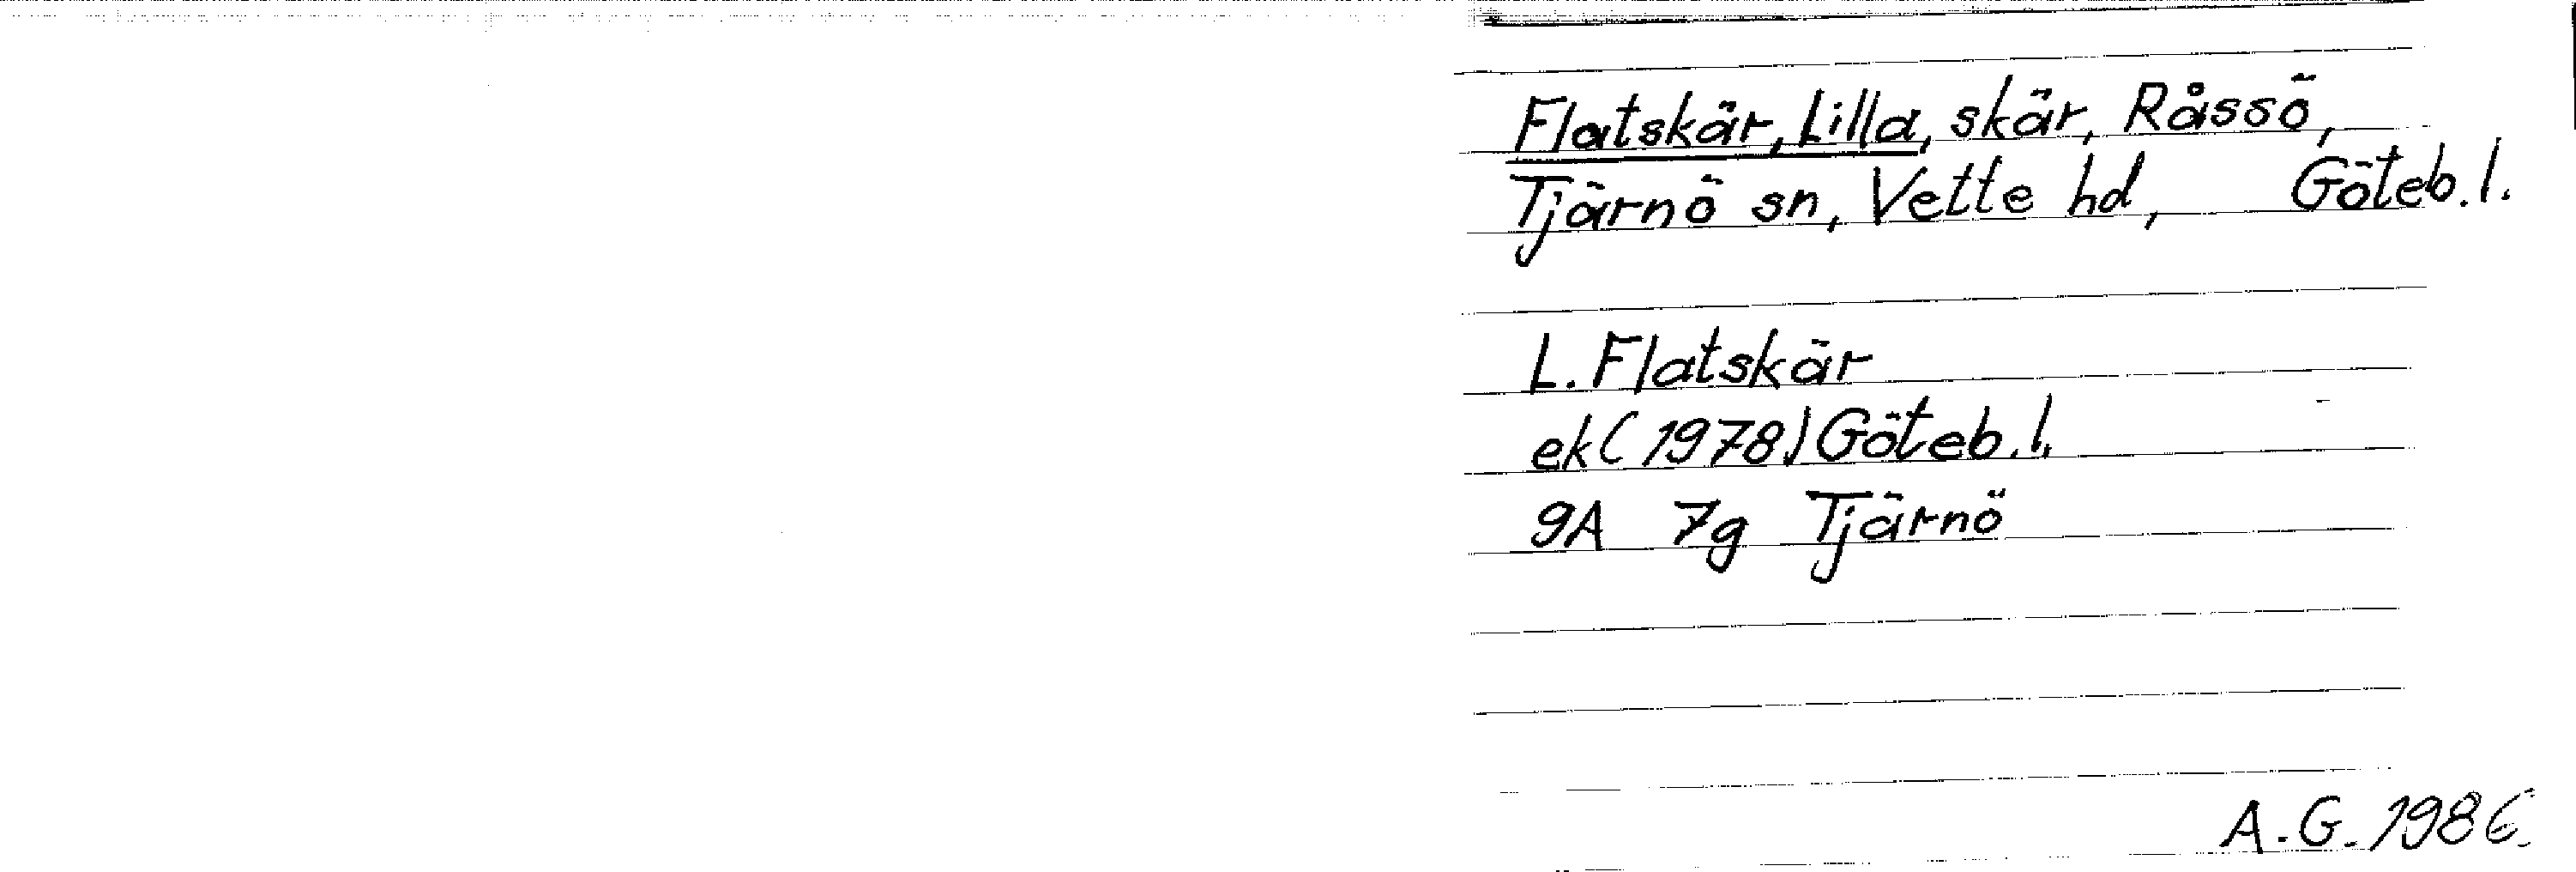 Flatskär, Lilla, skär, Råssö,
Tjärnö sn, Vette hd, Göteb. l.
L. Flatskär
ek (1978) Göteb. l.
9A 7g Tjärnö
A. G. 1986.